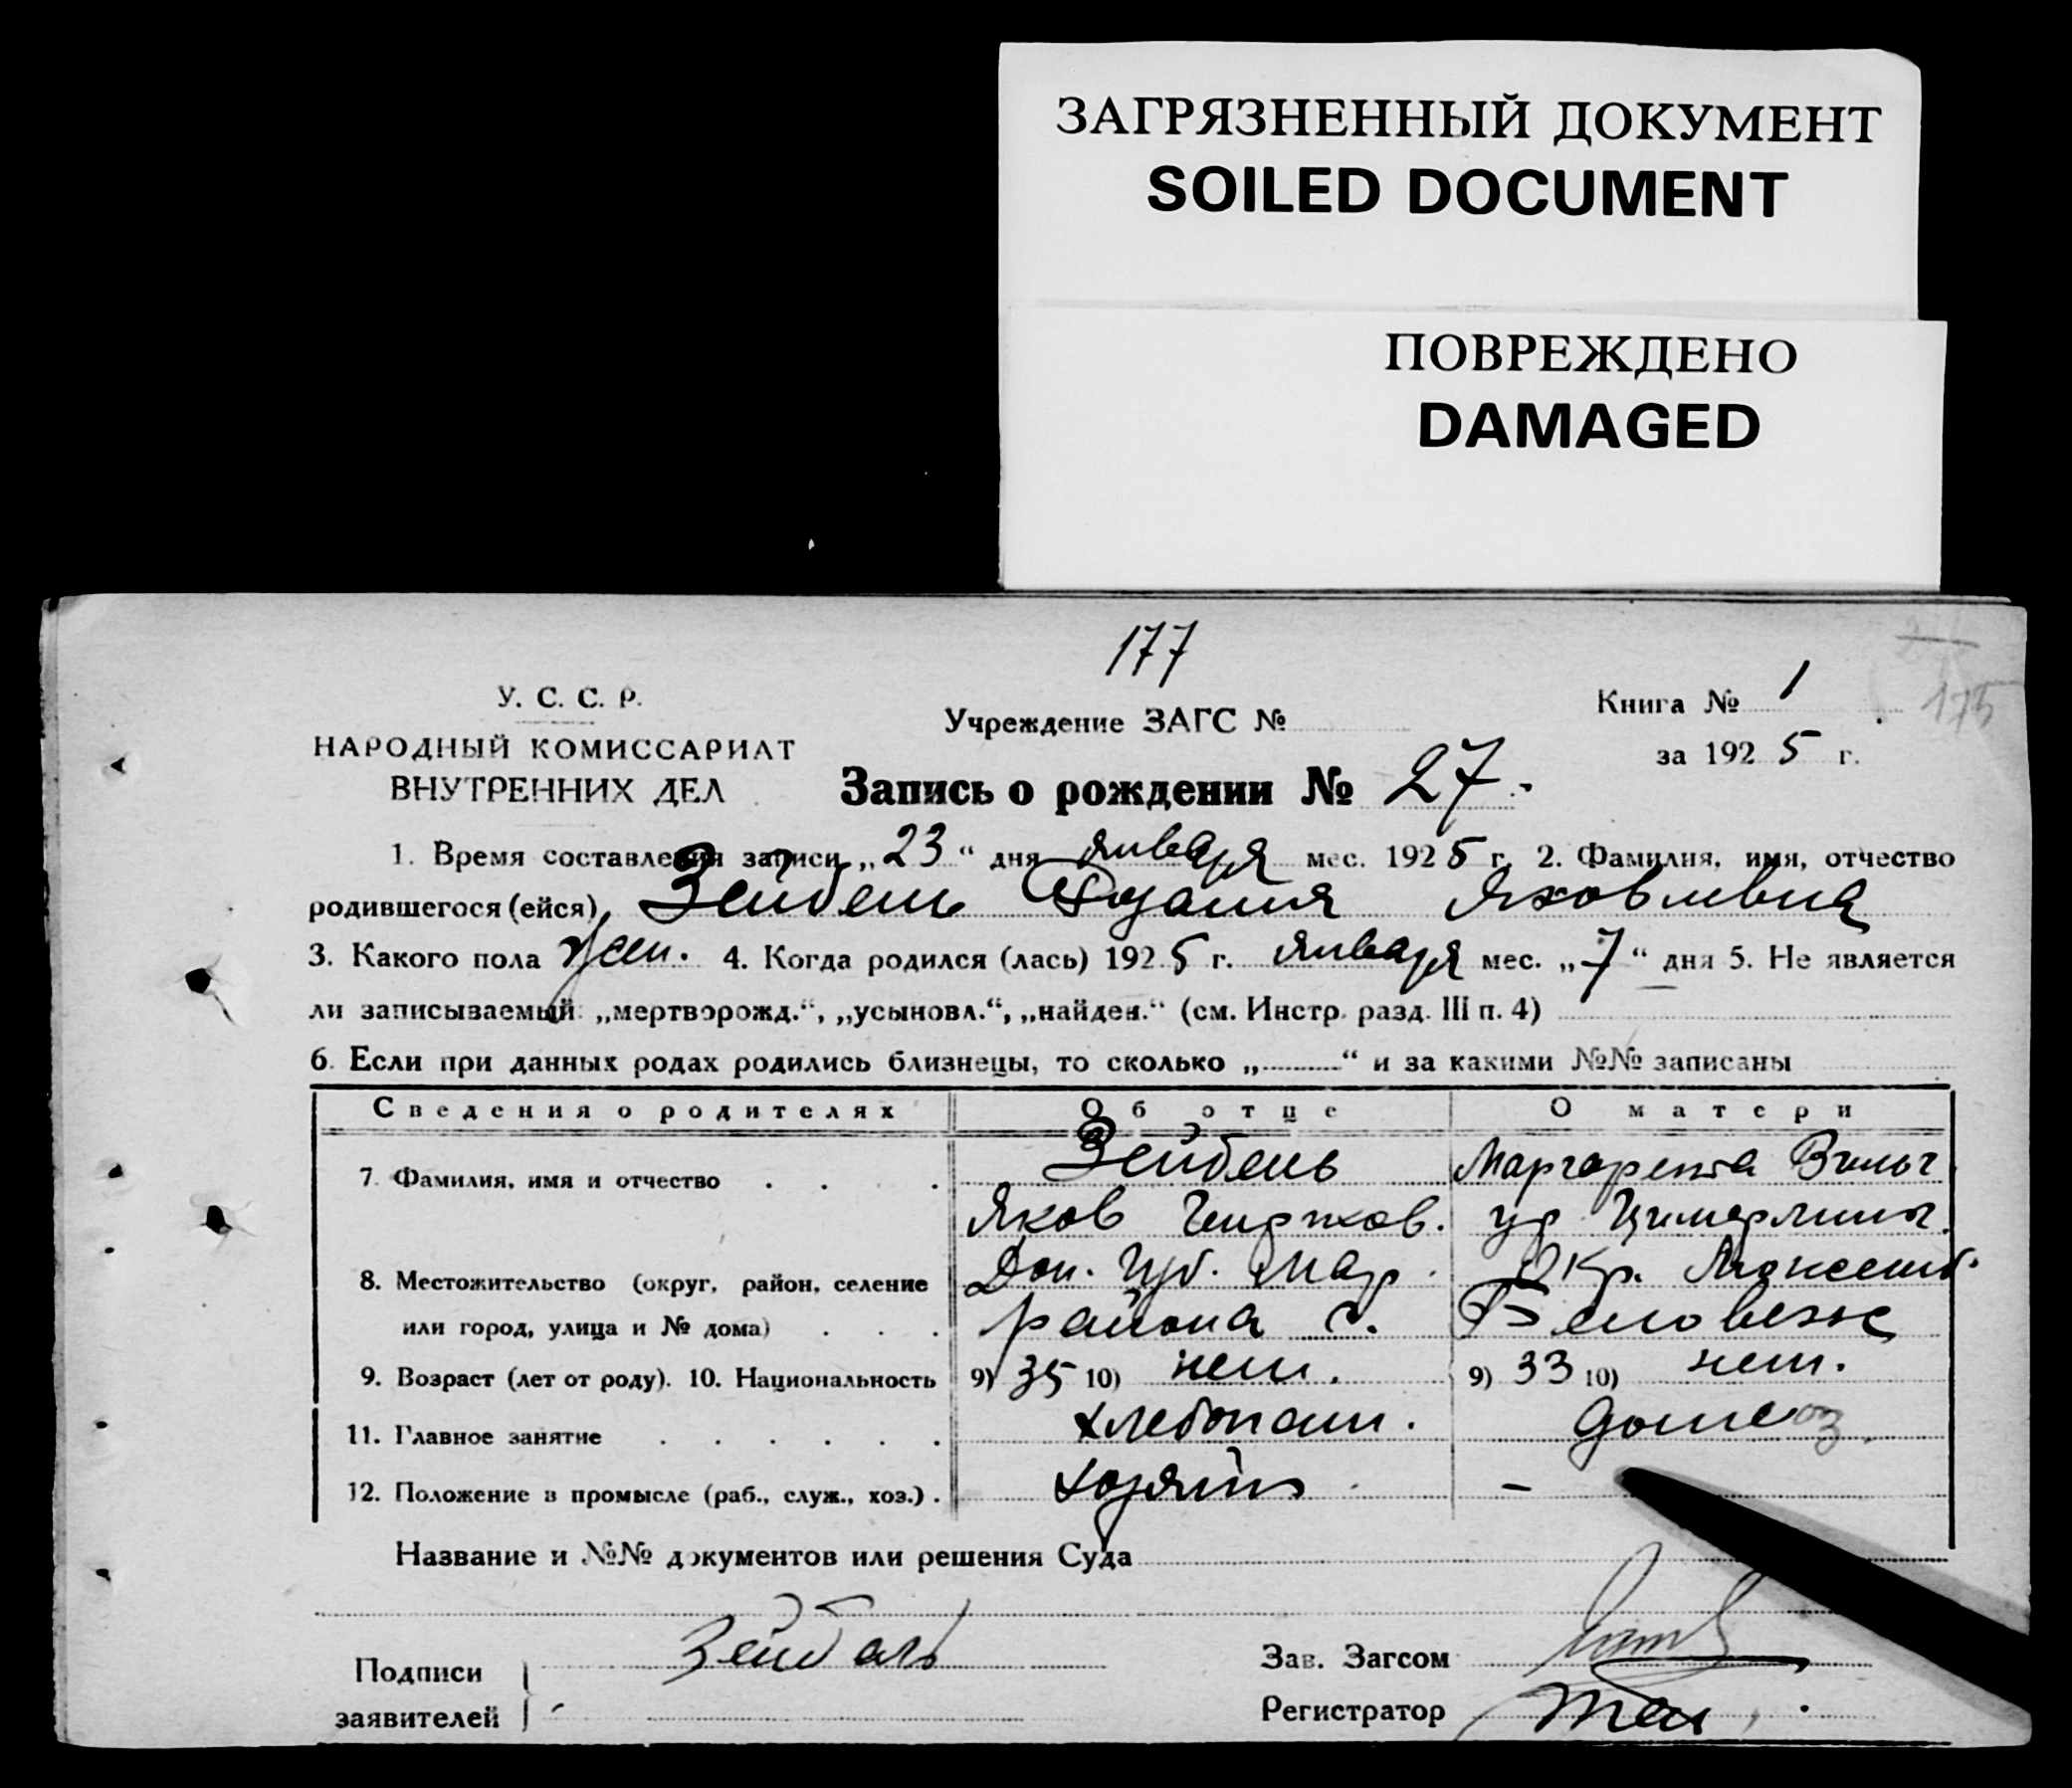 ЗАГРЯЗНЕННЫЙ ДОКУМЕНТ
SOILED DOCUMENT
ПОВРЕЖДЕНО
DAMAGED
177
175
У. С. С. Р.
НАРОДНЫЙ КОМИССАРИАТ
ВНУТРЕННИХ ДЕЛ
Учреждение ЗАГС №
Книга № 1
за 1925 г.
Запись о рождении № 27.
1. Время составления записи „23“ дня января мес. 1925 г. 2. Фамилия, имя, отчество
родившегося (ейся) Зейбель Яковлевна
3. Какого пола жен. 4. Когда родился (лась) 1925 г. января мес. „7“ дня 5. Не является
ли записываемый „мертворожд.“, „усыновл.“, „найден.“ (см. Инстр. разд. III п. 4)
6. Если при данных родах родились близнецы, то сколько „ “ и за какими №№ записаны
Сведения о родителях Об отце О матери
7. Фамилия, имя и отчество . . . Зейбель Маргарета Вильг.
Яков ур.
8. Местожительство (округ, район, селение Дон. Губ. Мар. Окр.
или город, улица и № дома) . . . района с. Беловеж
9. Возраст (лет от роду). 10. Национальность 9) 35 10) нем. 9) 33 10) нем.
11. Главное занятие . . . . . . хлебопаш. домхоз.
12. Положение в промысле (раб., служ., хоз.) . хозяин —
Название и №№ документов или решения Суда
Подписи заявителей Зейбель
Зав. Загсом
Регистратор